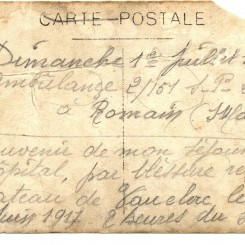 CARTE-POSTALE
Dimanche 1er Juillet
Ambulance 2/151 S.P.
à Romain
souvenir de mon séjour
hôpital, par blessure re
ateau de Vauclerc le
Juin 1917 2 heures du